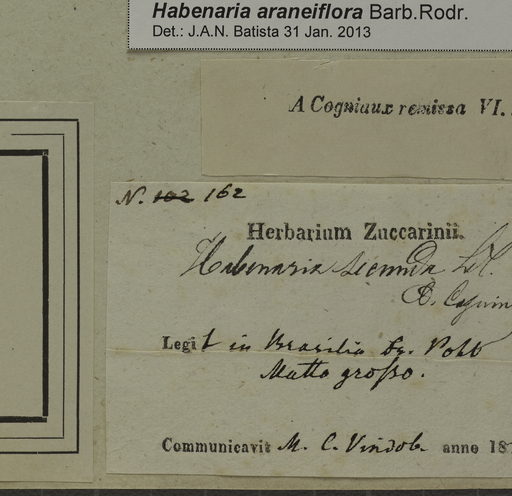 Habenaria araneiflora Barb.Rodr.
Det.: J.A.N. Batista 31 Jan. 2013
A Cogniaux remissa VI.
N. 102 162
Herbarium Zuccarinii.
Habenaria secunda Ldl.
Legit in Brasilia Dr. Pohl
Matto grosso.
Communicavit M. C. Vindob. anno 18